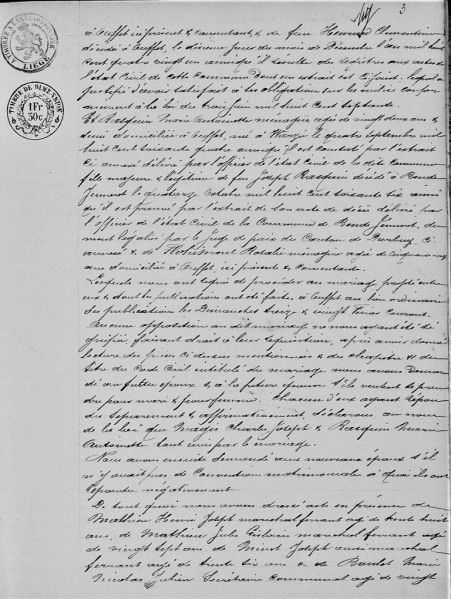 3
LIÈGE
TIMBRE DE DIMENSION
1Fr
30c
à Ouffet ici présent & consentant, & de feue
décédée à Ouffet, le dixième jour du mois de Décembre l'an mil huit
cent quatre vingt un ainsi qu'il résulte des registres aux actes de
l'état civil de cette commune dont un extrait est ci-joint, lequel a
justifié d'avoir satisfait à ses obligations sur la milice confor
mément à la loi de trois juin mil huit cent septante
Et Rasquin Marie Antoinette ménagère agée de vingt deux ans &
demi domiciliée à Ouffet, née à le quatre septembre mil
huit cent soixante quatre ainsi qu'il est constaté par l'extrait
ci annexé délivré par l'officier de l'état civil de la dite commune
fille majeure & légitime de feu Joseph Rasquin décédé à Bende
Jenneret le quatorze Octobre mil huit cent soixante six ainsi
qu'il est prouvé par l'extrait de son acte de décès délivré par
l'officier de l'état civil de la Commune de Bende Jenneret, du
ment légalisé par le Juge de paix du Canton de Durbuy, ci
annexé & de Rosalie ménagère agée de cinquante
ans domiciliée à Ouffet, ici présente & consentante.
Lesquels nous ont requis de procéder au mariage projeté entre
eux & dont les publications ont été faites à Ouffet au lieu ordinaire
des publications les Dimanches treize & vingt Février courant.
Aucune opposition au dit mariage ne nous ayant été si
gnifiée, faisant droit à leur réquisition, après avoir donné
lecture des pièces ci dessus mentionnées & du chapitre six du
titre du Code Civil intitulé du mariage nous avons deman
dé au futur époux & à la future épouse s'ils veulent se pren
dre pour mari & pour femme. Chacun d'eux ayant répon
du séparément & affirmativement, déclarons au nom
de la loi que Magis Charles Joseph & Rasquin Marie
Antoinette sont unis par le mariage.
Nous avons ensuite demandé aux nouveaux époux s'il
n'y avait pas de Convention matrimoniale à quoi ils ont
répondu négativement
De tout quoi nous avons dressé acte en présence de
Mathieu Henri Joseph maréchal ferrant agé de trente huit
ans, de Mathieu Jules maréchal ferrant agé
de vingt sept ans de Minet Joseph aussi maréchal
ferrant agé de trente six ans & de Marie
Nicolas Julien Secrétaire communal agé de vingt